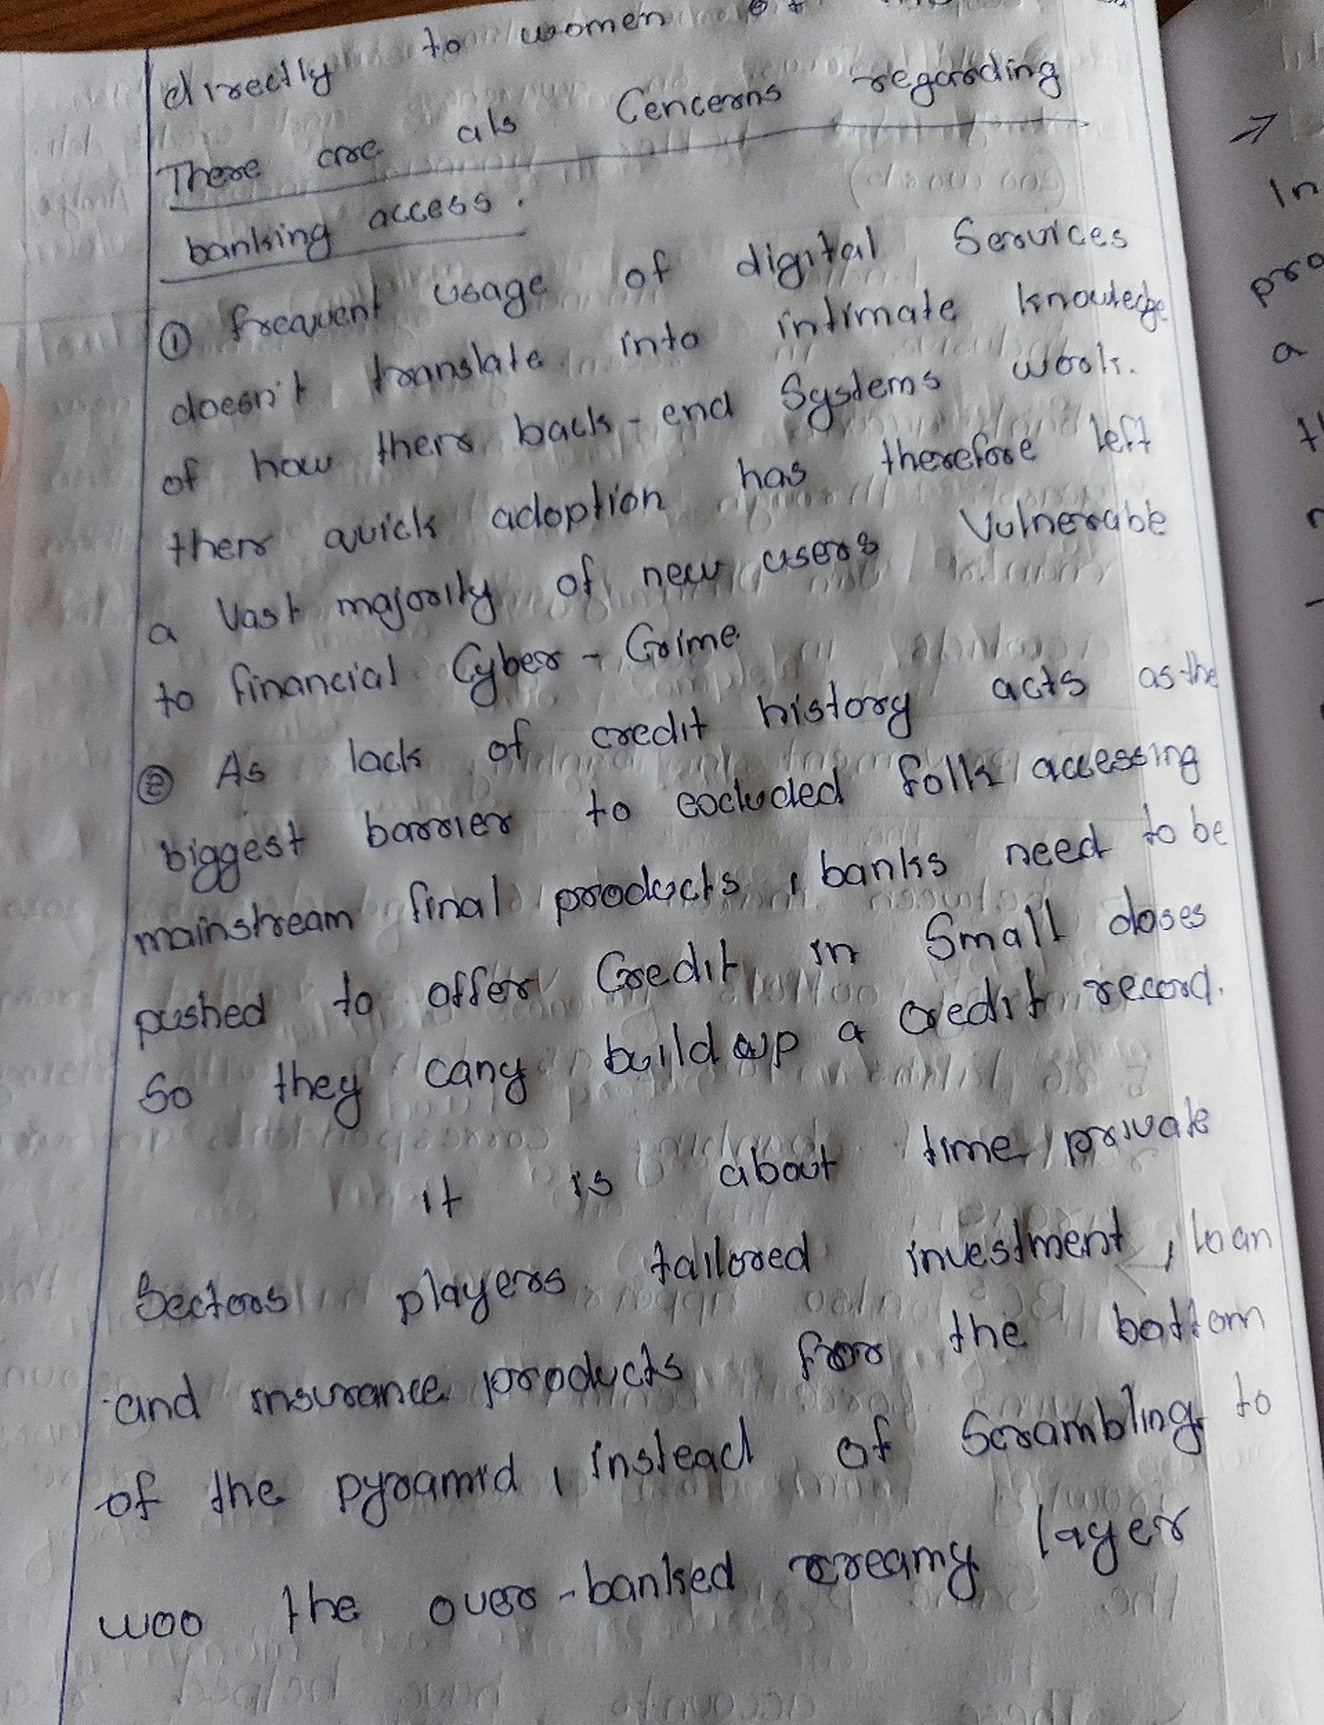 directly to women of
There are als Cencerns regarding
banking access.
① frequent usage of digital Services
doesn't translate into intimate knowledge
of how their back-end Systems work.
their quick adoption has therefore left
a Vast majority of new users Vulnerable
to financial Cyber-Crime
② As lack of credit history acts as the
biggest barrier to excluded folk accessing
mainstream final products, banks need to be
pushed to offer Credit in Small doses
So they cany build up a credit record.
it is about time private
Sectors players tailored investment, loan
and insurance products for the bottom
of the pyramid, instead of Scrambling to
woo the over-banked creamy layer
In
pro
a